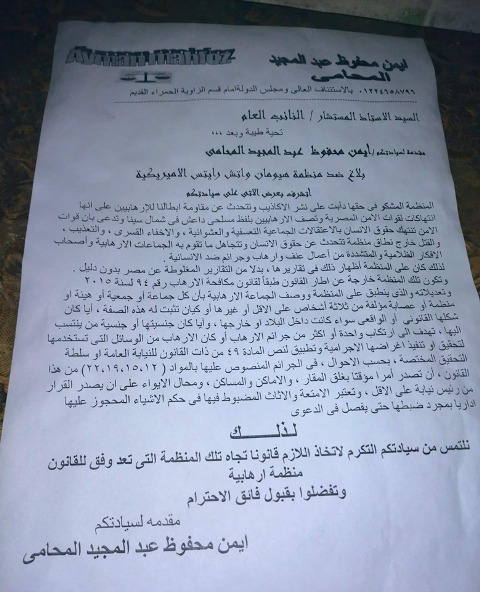 Ayman mahfoz
ايمن محفوظ عبد المجيد
المحامى
٠١٢٢٤٦٥٨٧٩٦ بالاستئناف العالى ومجلس الدولة امام قسم الزاوية الحمراء القديم
السيد الاستاذ المستشار / النائب العام
تحية طيبة وبعد ،،،
مقدمة لسيادتكم / ايمن محفوظ عبد المجيد المحامى
بلاغ ضد منظمة هيومان واتش رايتس الاميريكية
اتشرف بعرض الاتى على سيادتكم
المنظمة المشكو فى حقها دأبت على نشر الاكاذيب وتتحدث عن مقاومة ابطالنا للإرهابيين على انها
انتهاكات لقوات الامن المصرية وتصف الارهابيين بلفظ مسلحى داعش فى شمال سينا وتدعى بأن قوات
الامن تنتهك حقوق الانسان بالاعتقالات الجماعية التعسفية والعشوائية ، والاخفاء القسرى ، والتعذيب ،
والقتل خارج نطاق منظمة تتحدث عن حقوق الانسان وتتجاهل ما تقوم به الجماعات الارهابية وأصحاب
الافكار الظلامية والمتشددة من أعمال عنف وارهاب وجرائم ضد الانسانية .
لذلك كان على المنظمة أظهار ذلك فى تقاريرها ، بدلا من التقارير المغلوطة عن مصر بدون دليل .
وتكون تلك المنظمة خارجة عن اطار القانون طبقاً لقانون مكافحة الارهاب رقم ٩٤ لسنة ٢٠١٥
وتعديلاته والذى ينطبق على المنظمة ووصف الجماعة الارهابية بأن كل جماعة أو جمعية أو هيئة أو
منظمة أو عصابة مؤلفة من ثلاثة أشخاص على الاقل أو غيرها أو كيان تثبت له هذه الصفة ، أيا كان
شكلها القانونى أو الواقعى سواء كانت داخل البلاد او خارجها ، وأيا كان جنسيتها أو جنسية من ينتسب
اليها ، تهدف الى ارتكاب واحدة او اكثر من جرائم الارهاب أو كان الارهاب من الوسائل التى تستخدمها
لتحقيق او تنفيذ اغراضها الاجرامية وتطبيق لنص المادة ٤٩ من ذات القانون للنيابة العامة او سلطة
التحقيق المختصة ، بحسب الاحوال ، فى الجرائم المنصوص عليها بالمواد (٢٢،١٩،١٥،١٢) من هذا
القانون ، أن تصدر أمرا مؤقتا بغلق المقار ، والاماكن والمساكن ، ومحال الايواء على ان يصدر القرار
من رئيس نيابة على الاقل ، وتعتبر الامتعة والاثاث المضبوط فيها فى حكم الاشياء المحجوز عليها
اداريا بمجرد ضبطها حتى يفصل فى الدعوى
لـذلـــــــك
نلتمس من سيادتكم التكرم لاتخاذ اللازم قانونا تجاه تلك المنظمة التى تعد وفق للقانون
منظمة ارهابية
وتفضلوا بقبول فائق الاحترام
مقدمه لسيادتكم
ايمن محفوظ عبد المجيد المحامى